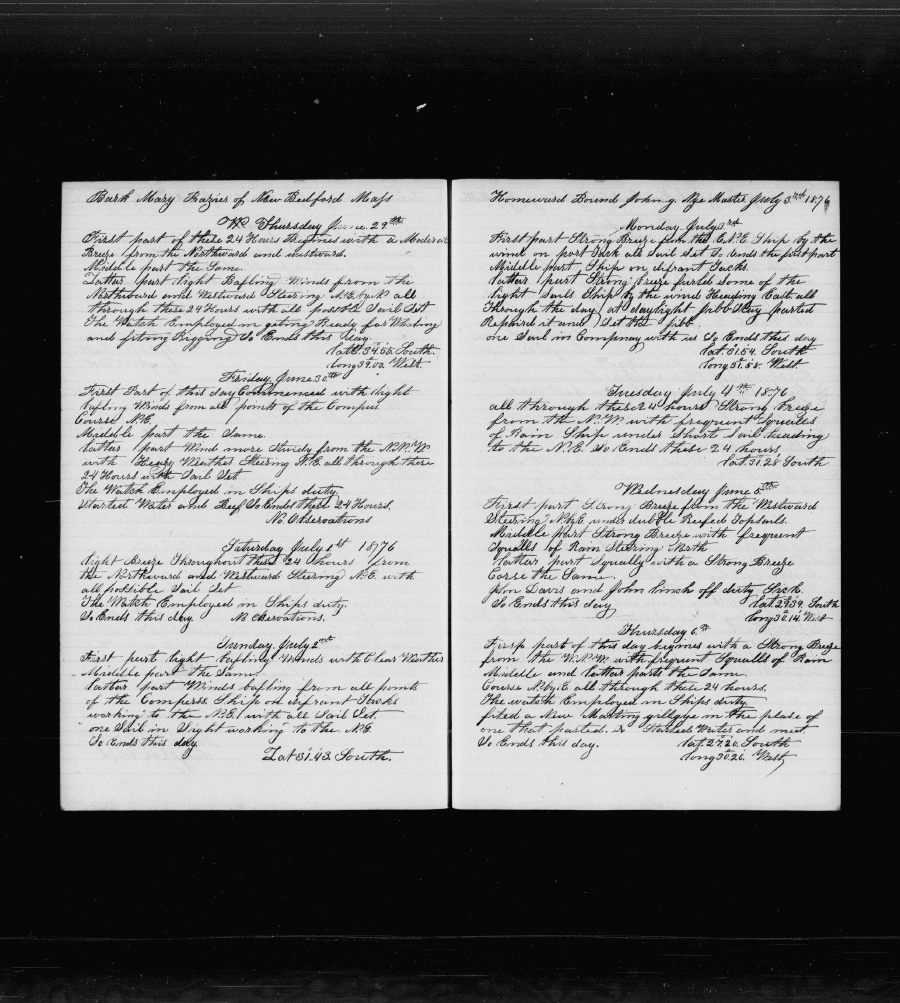 Bark Mary Frazier of New Bedford Mass
Thursday June 29th
First part of these 24 Hours Begines with a Moderate
Breeze from the Northward and eastward.
Middle part the Same.
Lattar part light Bafling Winds from the
Northward and Westward Steering N.E. by N. all
through these 24 Hours with all possble Sail Set
The Watch Employed in geting Ready for Whaling
and fiting Rigging So Ends this day.
Lat 34.55. South.
Long 39.00. West.
Friday June 30th
First Part of this day Commenced with light
bafling Winds from all points of the Compus.
Course N.E.
Middle part the Same.
Lattar part Wind more Study from the N.N.W.
with Heavy Weather Steering N.E. all through these
24 Hours with Sail Set
The Watch Employed in Ships duty
Started Water and Beef So Ends these 24 Hours.
No Observations
Saturday July 1st 1876
light Breeze Throughout these 24 hours from
the Northward and Westward Steering N.E. with
all possible Sail Set
The Watch Employed in Ships duty.
So Ends this day. No Observations.
Sunday July 2nd
First part light bafling Winds with Clear Weather
Middle part the Same.
Lattar part Winds bafling from all points
of the Compess. Ship on difrant Tacks
working to the N.E. with all Sail Set.
one Sail in Sight working to the N.E.
So Ends this day.
Lat 31.43 South.
Homeward Bound John g. Nye Master July 3rd 1876
Monday July 3rd
First part Strong Breeze from the E.N.E. Ship by the
wind on port Tack all Sail Set So Ends the first part
Middle part Ship on difrant Tacks.
Lattar part Strong Breeze furled Some of the
light Sails Ship by the wind Heading East all
Through the day at daylight Jibb Stay parted
Repaired it and Set the Jibb.
one Sail in Compnay with us So Ends this day
Lat. 31.54. South
Long 31.58. West.
Tuesday July 4th 1876
all through these 24 hours Strong Breeze
from the N.W. with frequent Squalls
of Rain Ship under Short Sail heading
to the N.E. So Ends these 24 hours.
Lat. 31.28 South
Wednesday June 5th
First part Strong Breeze from the Westward
Steering N. by E. under dubble Reefed Topsails.
Middle part Strong Breeze with frequent
Squalls of Rain Steering North
Lattar part Squally with a Strong Breeze
Corse the Same.
Jhn Davis and John off duty Sick.
So Ends this day Lat. 29.39. South
Long 30.14. West
Thursday 6th
Firsp part of this day begines with a Strong Breeze
from the W.N.W. with frequent Squalls of Rain
Middle and lattar parts the Same.
Course N. by E. all through these 24 hours.
The watch Employed in Ships duty
fited a New in the plase of
one that parted. Started Water and meat
So Ends this day. Lat. 27.20. South
Long 30.26. West